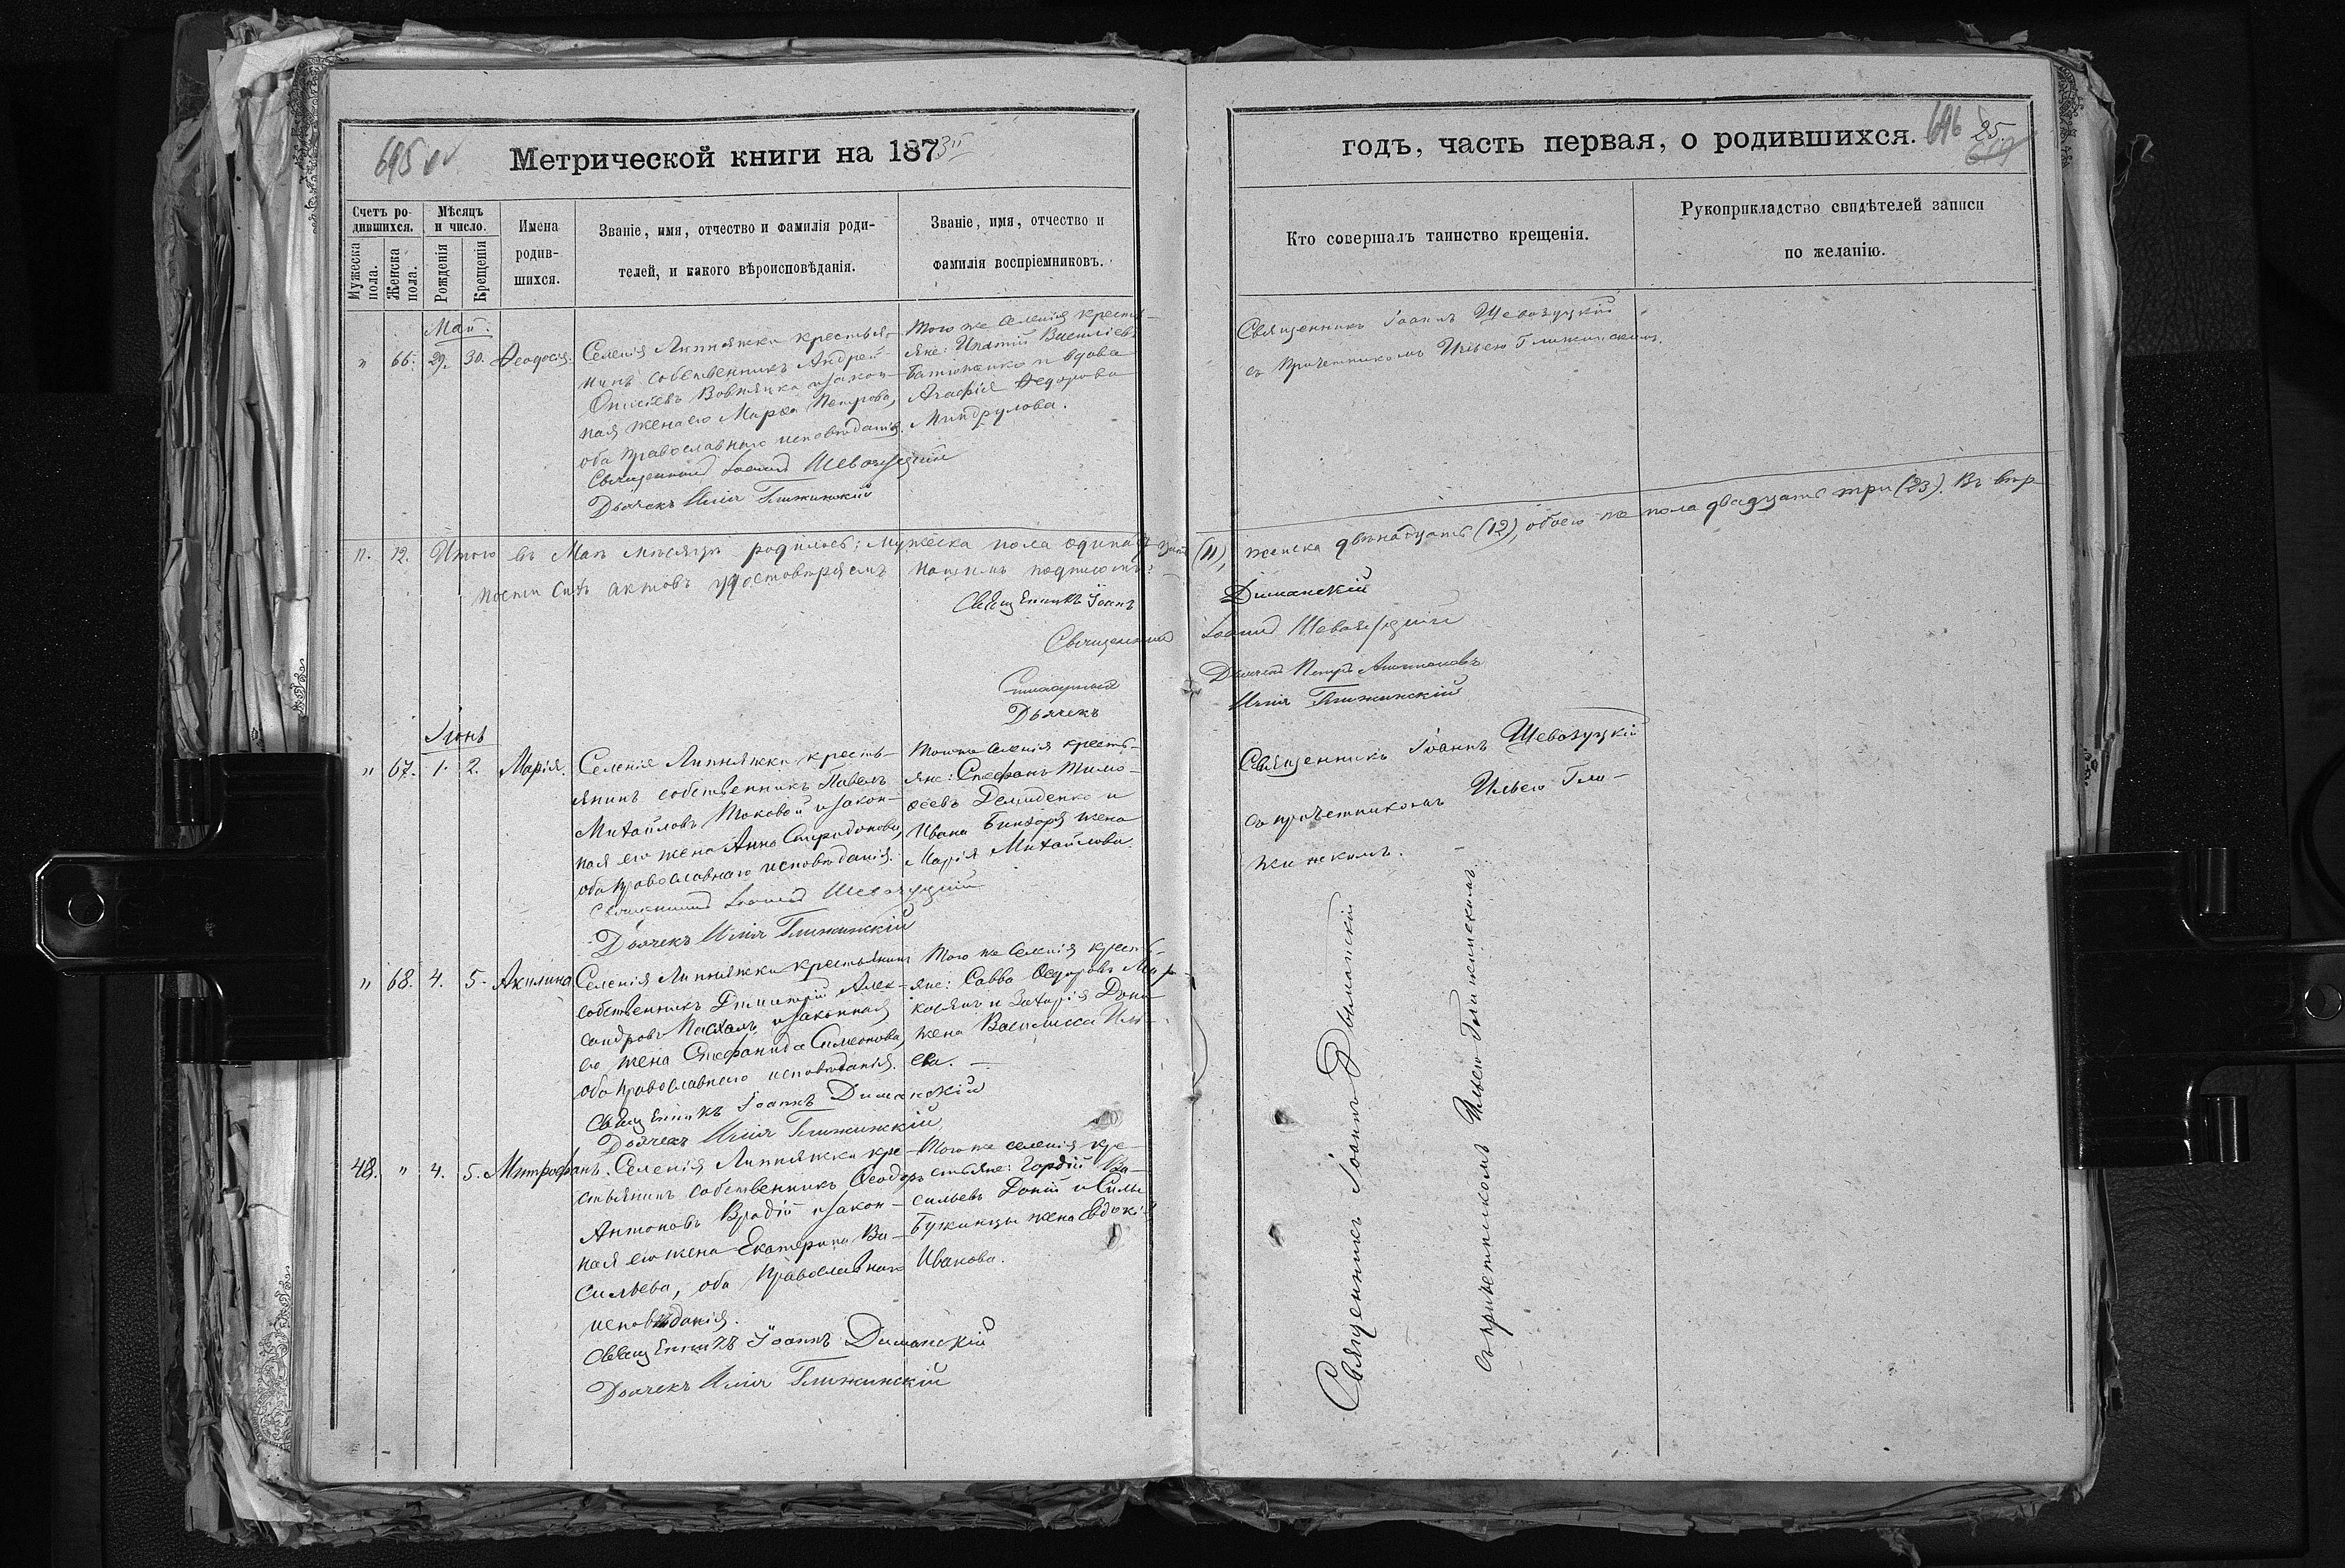 695 об
Метрической книги на 1873й
годъ, часть первая, о родившихся.
696
25.
Счетъ родившихся.
Мужеска пола.
Женска пола.
Мѣсяцъ и число.
Рожденія
Крещенія
Имена родившихся.
Званіе, имя, отчество и фамилія родителей, и какого вѣроисповѣданія.
Званіе, имя, отчество и фамилія воспріемниковъ.
Кто совершалъ таинство крещенія.
Рукоприкладство свидѣтелей записи по желанію.
Май.
" 66. 29. 30. Ѳеодосія.
Селенія Липняжки крестья-
нинъ собственникъ Андрей
и закон-
ная жена его Марѳа Петрова,
оба православнаго исповѣданія.
Священникъ Іоаннъ Шевазуцкій
Дьячекъ Илія Глижинскій
Того же селенія кресть-
яне: Игнатій Василіевъ
и вдова
Агафія Ѳедорова
Священникъ Іоаннъ Шевазуцкій
съ причетникомъ Ильею Глижинскимъ.
11. 12. Итого въ Маѣ мѣсяцѣ родилось: мужеска пола одинадцать (11), женска двѣнадцать (12), обоего же пола двадцать три (23). Въ вѣр-
ности сихъ актовъ удостовѣряемъ нашимъ подписомъ:
Священникъ Іоаннъ Диманскій
Священникъ Іоаннъ Шевазуцкій
Дьячекъ Петръ
Дьячекъ Илія Глижинскій
Іюнь
" 67. 1. 2. Марія.
Селенія Липняжки кресть-
янинъ собственникъ Павелъ
Михайловъ Токовой и закон-
ная его жена Анна Спиридонова,
оба православнаго исповѣданія.
Священникъ Іоаннъ Шевазуцкій
Дьячекъ Илія Глижинскій
Того же селенія кресть-
яне: Стефанъ Тимо-
ѳеевъ Демиденко и
Ивана жена
Марія Михайлова.
Священникъ Іоаннъ Шевазуцкій
съ причетникомъ Ильею Гли-
жинскимъ.
" 68. 4. 5. Акилина
Селенія Липняжки крестьянинъ
собственникъ Димитрій Алек-
сандровъ и законная
его жена Стефанида Симеонова,
оба православнаго исповѣданія.
Священникъ Іоаннъ Диманскій
Дьячекъ Илія Глижинскій
Того же селенія кресть-
яне: Савва Ѳедоровъ
и Захарія
жена Василисса Иль-
ева.
48. " 4. 5. Митрофанъ.
Селенія Липняжки кре-
стьянинъ собственникъ Ѳеодоръ
Антоновъ Врадій и закон-
ная его жена Екатерина Ва-
сильева, оба православнаго
исповѣданія.
Священникъ Іоаннъ Диманскій
Дьячекъ Илія Глижинскій
Того же селенія кре-
стьяне: Гордій Ва-
сильевъ и Силы
жена Евдокія
Иванова.
Священникъ Іоаннъ Дыманскій
съ причетникомъ Ильею Глижинскимъ